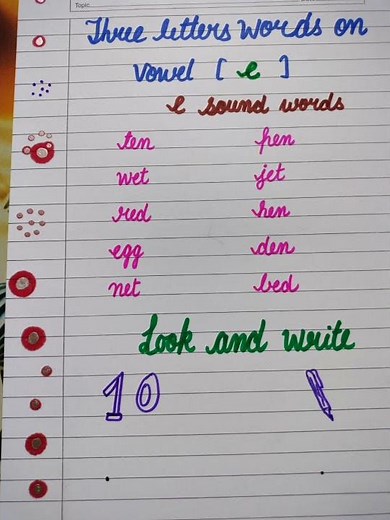 Topic
Three letters words on
vowel [ e ]
e sound words
ten pen
wet jet
red hen
egg den
net bed
Look and write
10